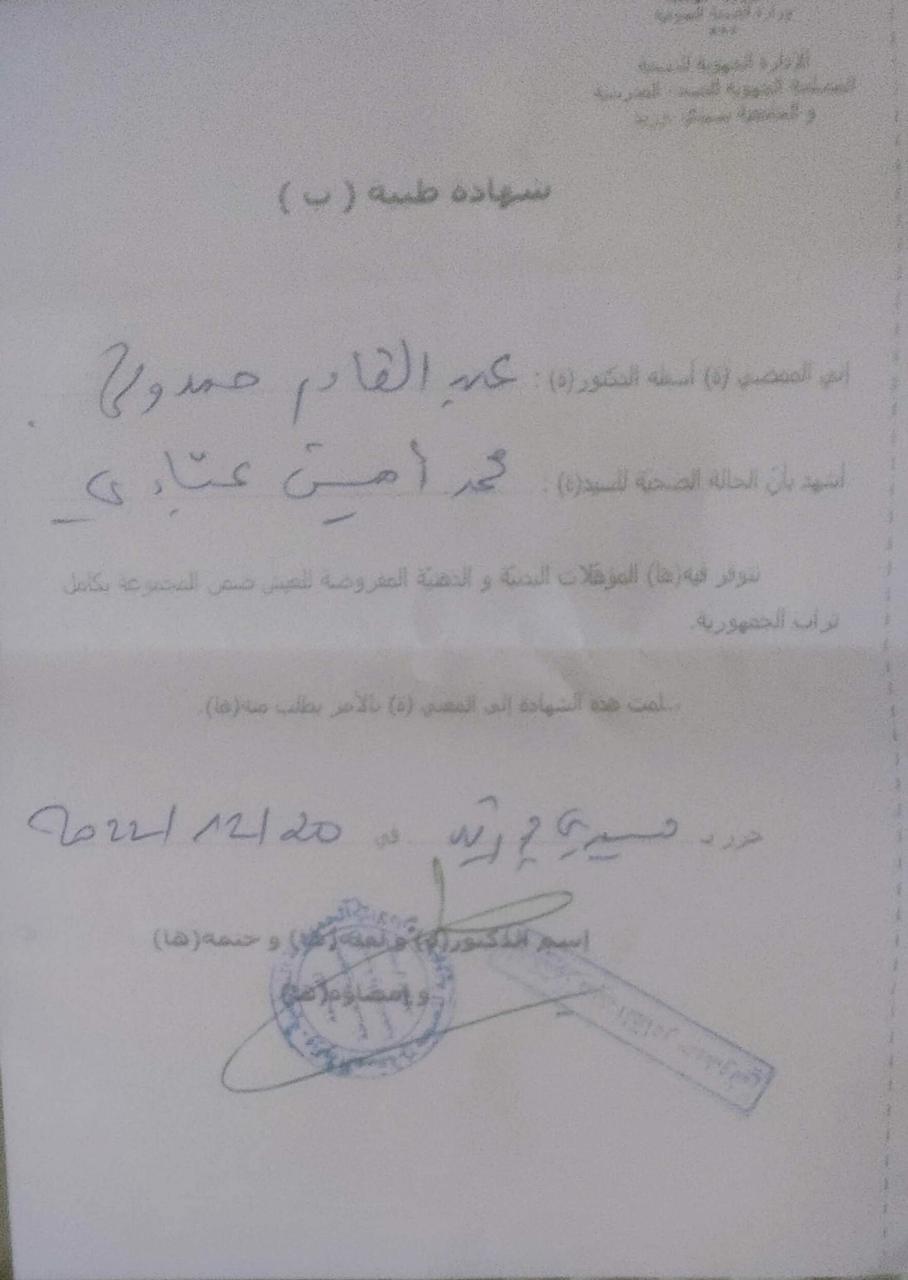 وزارة الصحة العمومية
***
الإدارة الجهوية للصحة
المصلحة الجهوية للصحة المدرسية
و الجامعية بسيدي بوزيد
شهادة طبية ( ب )
إني الممضي (ة) أسفله الدكتور(ة) : عبد القادر حمدوني
أشهد بأن الحالة الصحية للسيد(ة) : محمد أمين عبادي
تتوفر فيه(ها) المؤهلات البدنية و الذهنية المفروضة للعيش ضمن المجموعة بكامل
تراب الجمهورية.
سلمت هذه الشهادة إلى المعني (ة) بالأمر بطلب منه(ها).
حرر بـ سيدي بوزيد في 20/12/2022
إسم الدكتور(ة) و لقبه(ها) و ختمه(ها)
و إمضاؤه(ها)